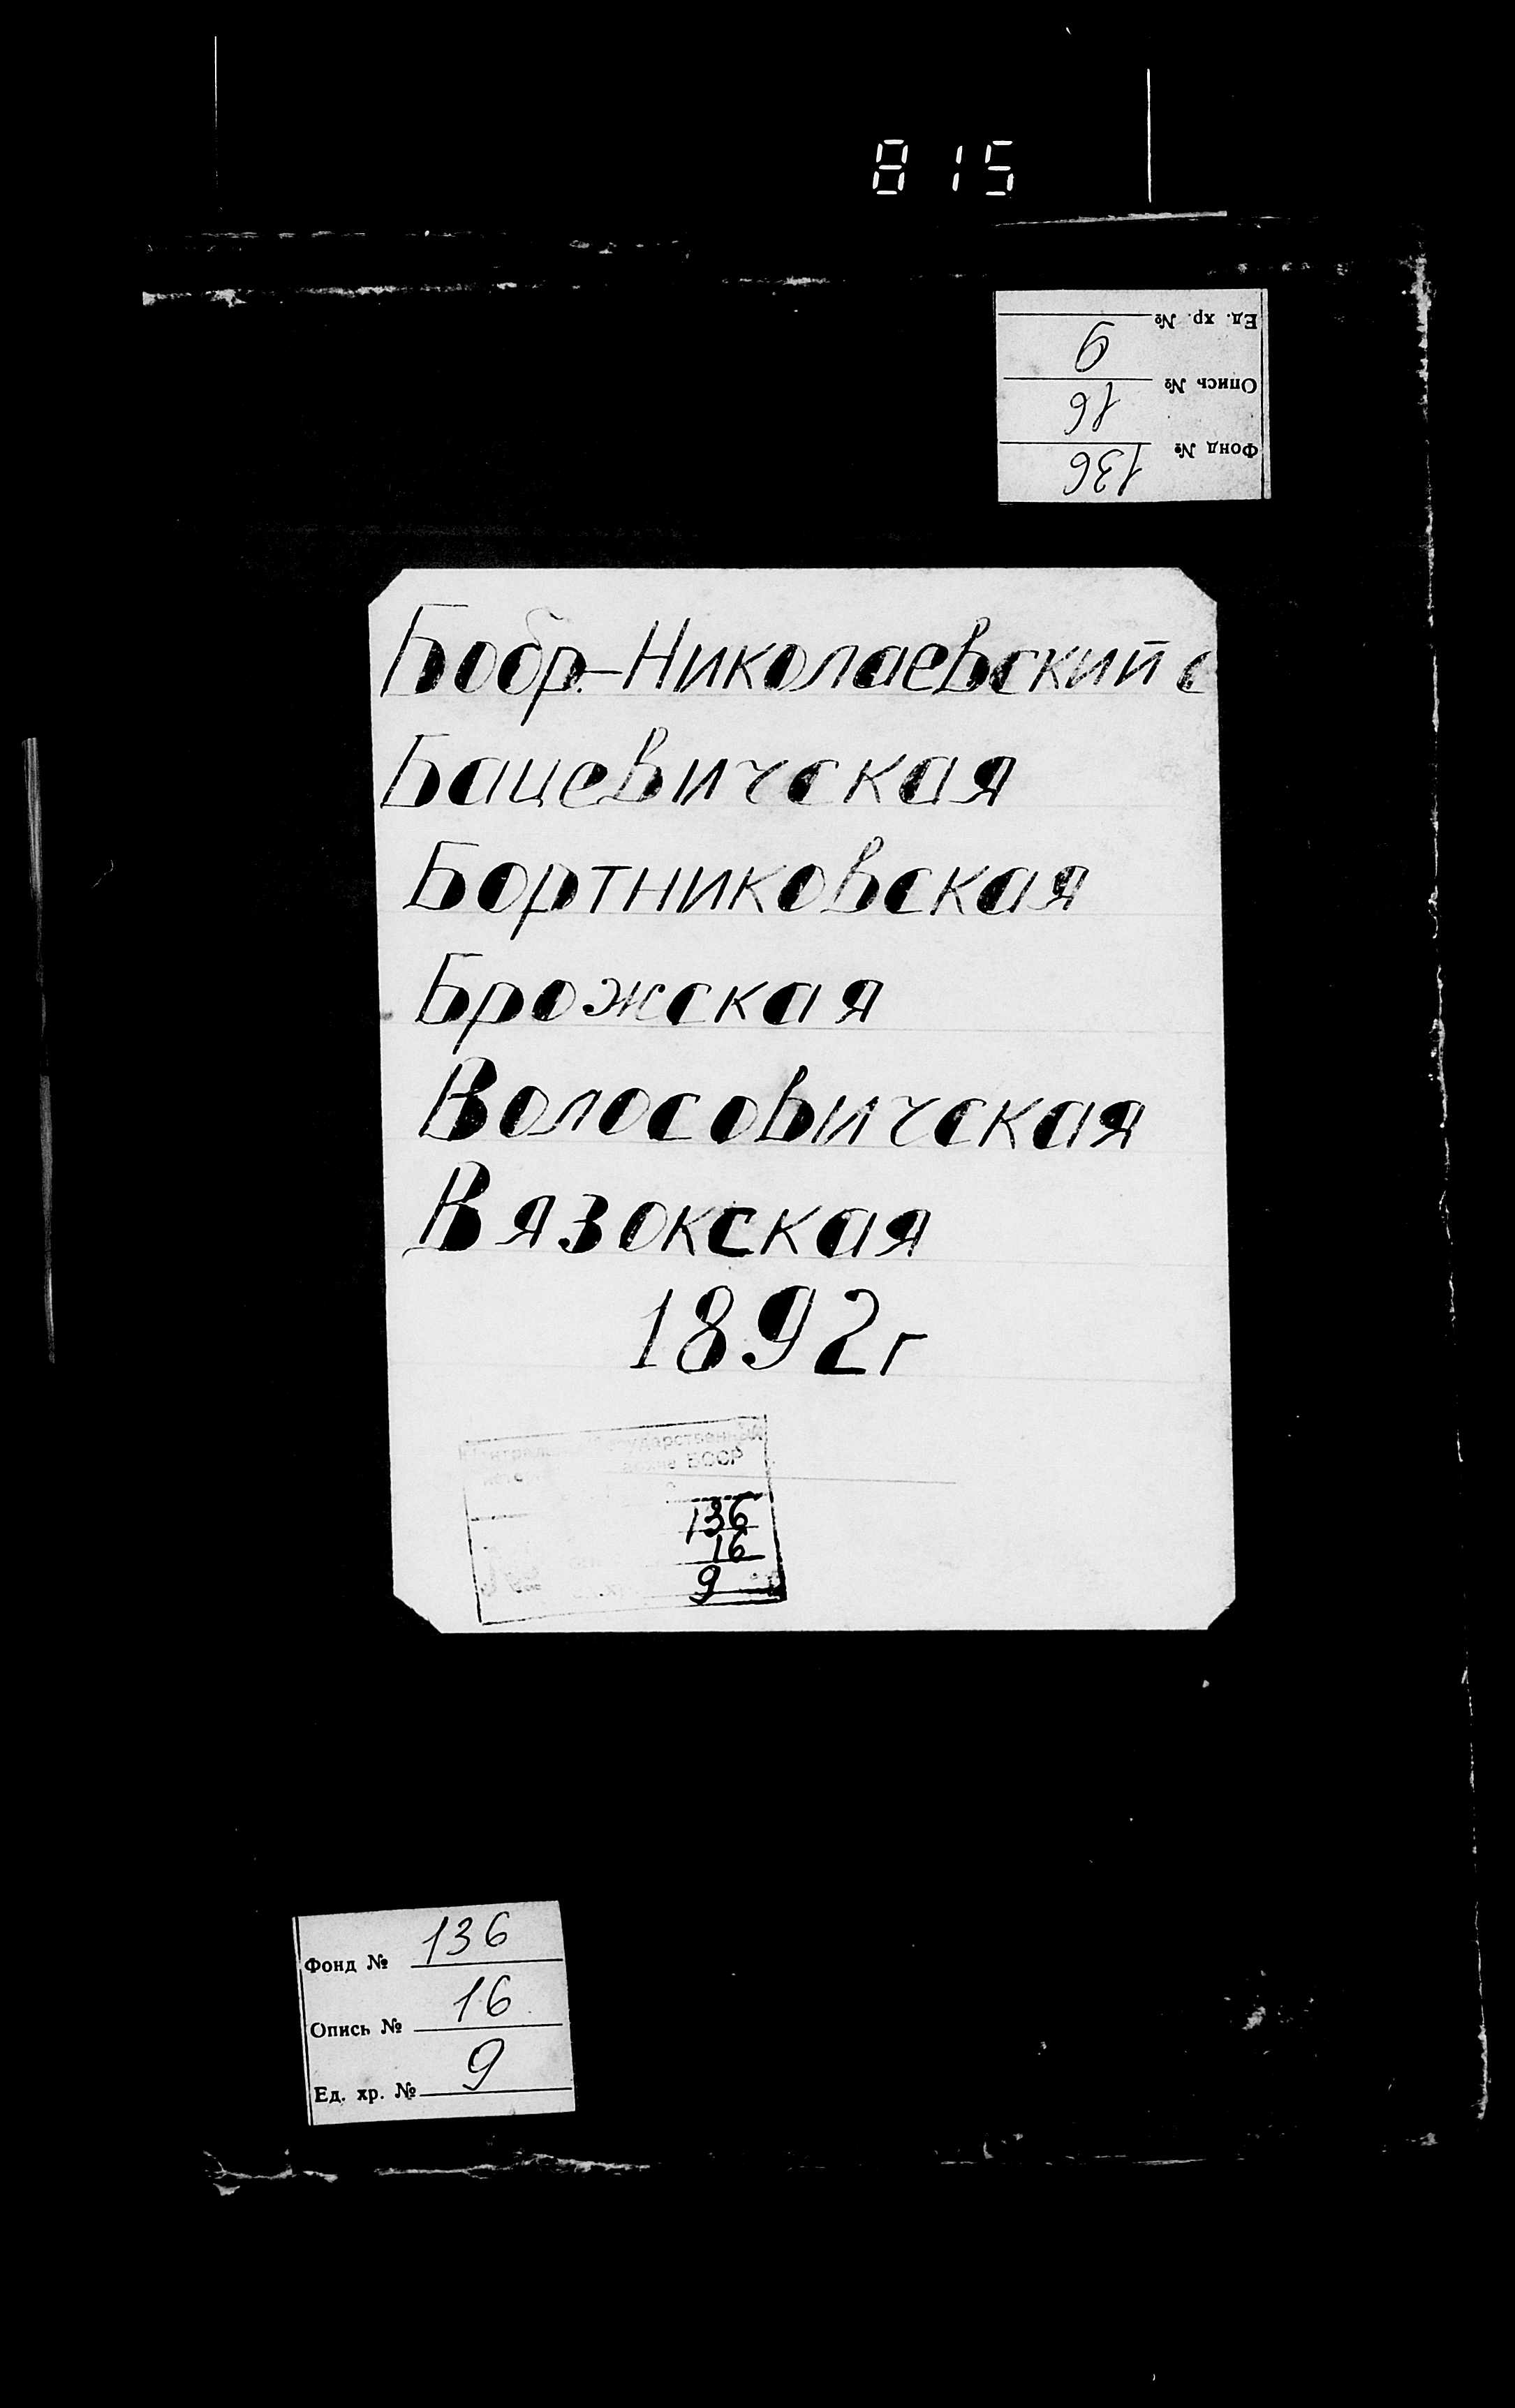 815
Ед. хр. № 9
Опись № 16
Фонд № 136
Бобр.-Николаевский с
Бацевичская
Бортниковская
Брожская
Волосовичская
Вязокская
1892г
БССР
136
16
9
Фонд № 136
Опись № 16
Ед. хр. № 9